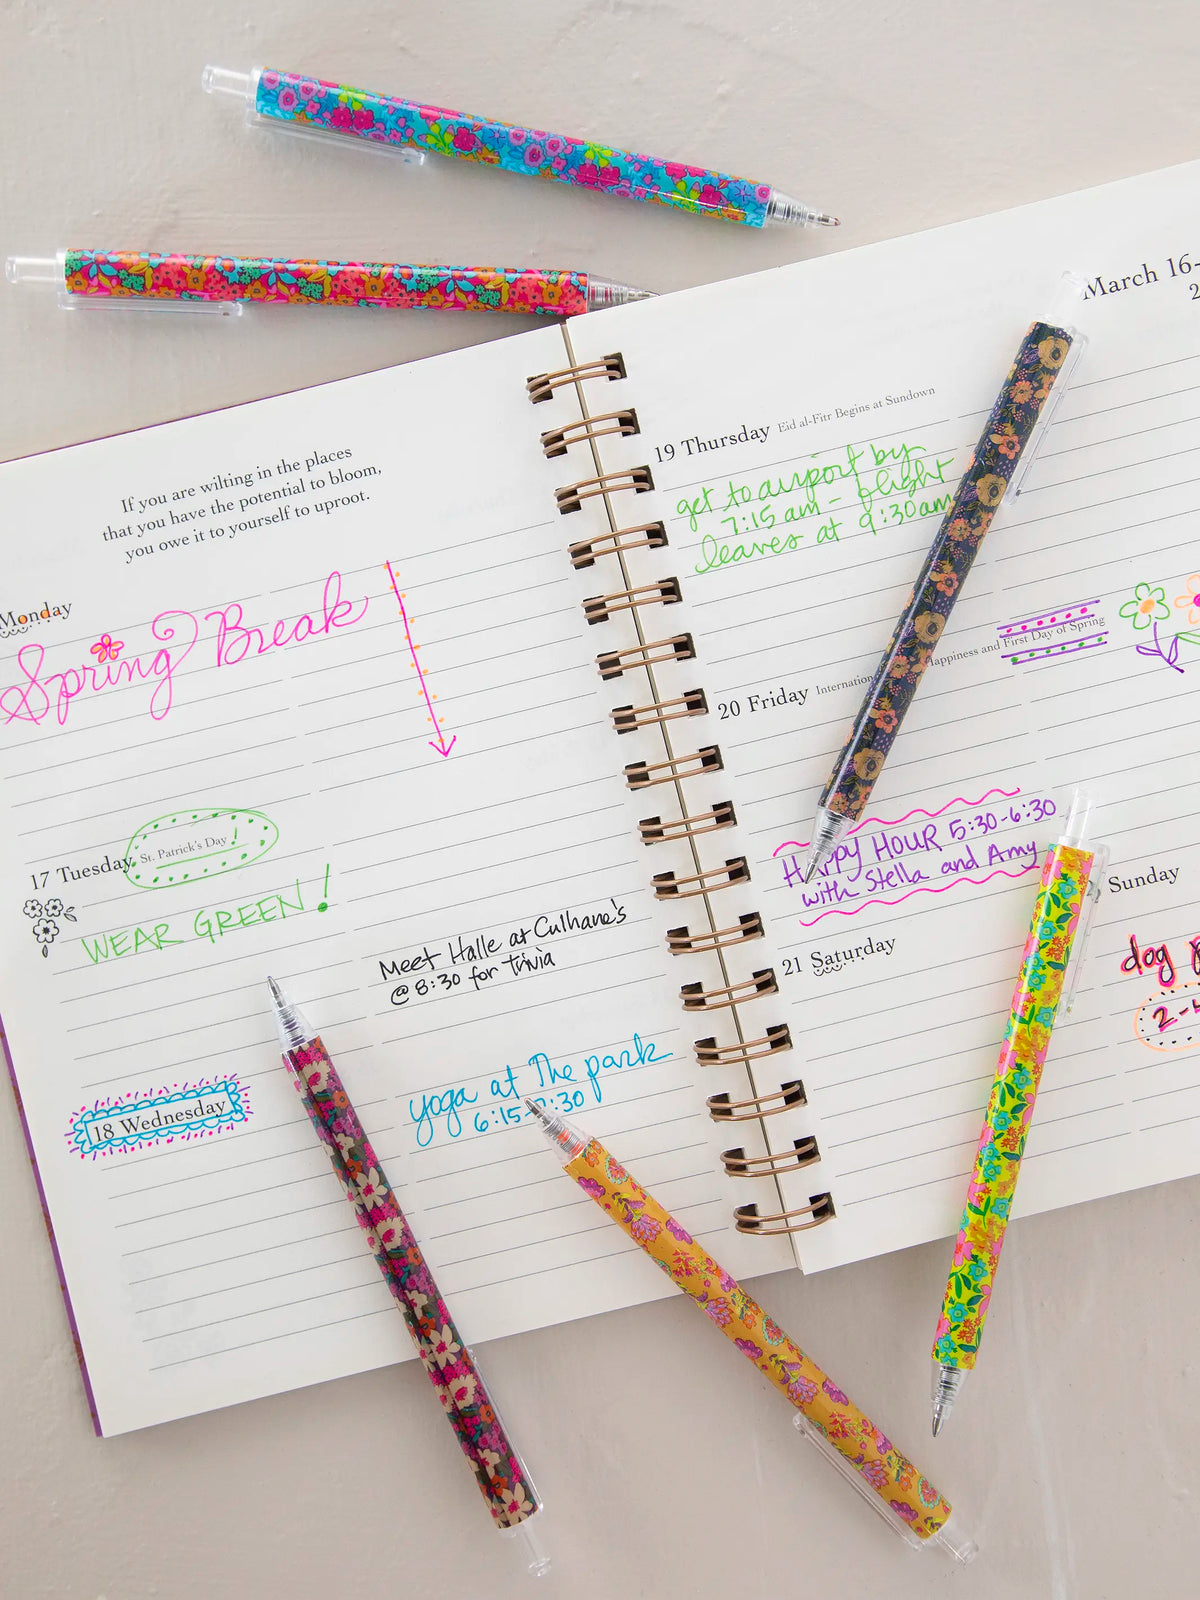 If you are wilting in the places
that you have the potential to bloom,
you owe it to yourself to uproot.
Monday
Spring Break
17 Tuesday St. Patrick's Day !
WEAR GREEN!
Meet Halle at Culhane's
@ 8:30 for trivia
18 Wednesday
yoga at The park
6:15-7:30
March 16-
19 Thursday Eid al-Fitr Begins at Sundown
get to airport by
7:15 am - flight
leaves at 9:30am
20 Friday Happiness and First Day of Spring
HAPPY HOUR 5:30-6:30
with Stella and Amy
21 Saturday
Sunday
dog
2-